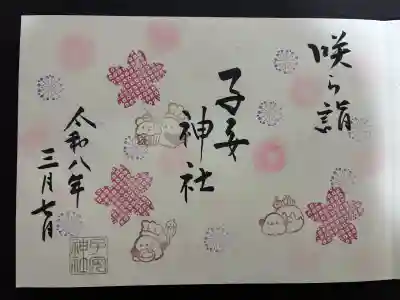 咲ら詣
子安神社
令和八年
三月七日
子安
神社